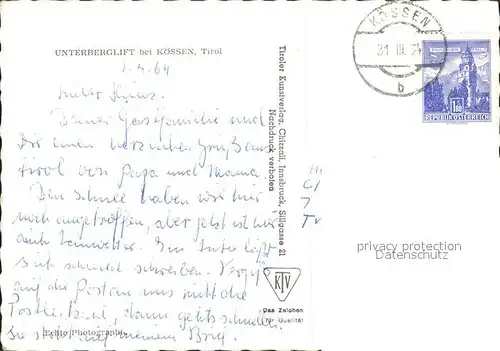 UNTERBERGLIFT bei KÖSSEN, Tirol
1.4.64
Deiner Gastfamilie und
Dir einen herzlichen Gruß aus
Tirol von Papa und Mama.
Den Schnee haben wir hier
noch angetroffen, aber jetzt ist hier
auch Tauwetter. Im
sich schlecht schreiben.
auf die nicht die
Postleitzahl, dann gehts schneller.
Sie steht auf meinem Brief.
Echte Photographie
Tiroler Kunstverlag, Chizzali, Innsbruck, Sillgasse 21
Nachdruck verboten
KTV
Das Zeichen
für Qualität
KÖSSEN
31. III. 64
b
REPUBLIK ÖSTERREICH
privacy protection
Datenschutz